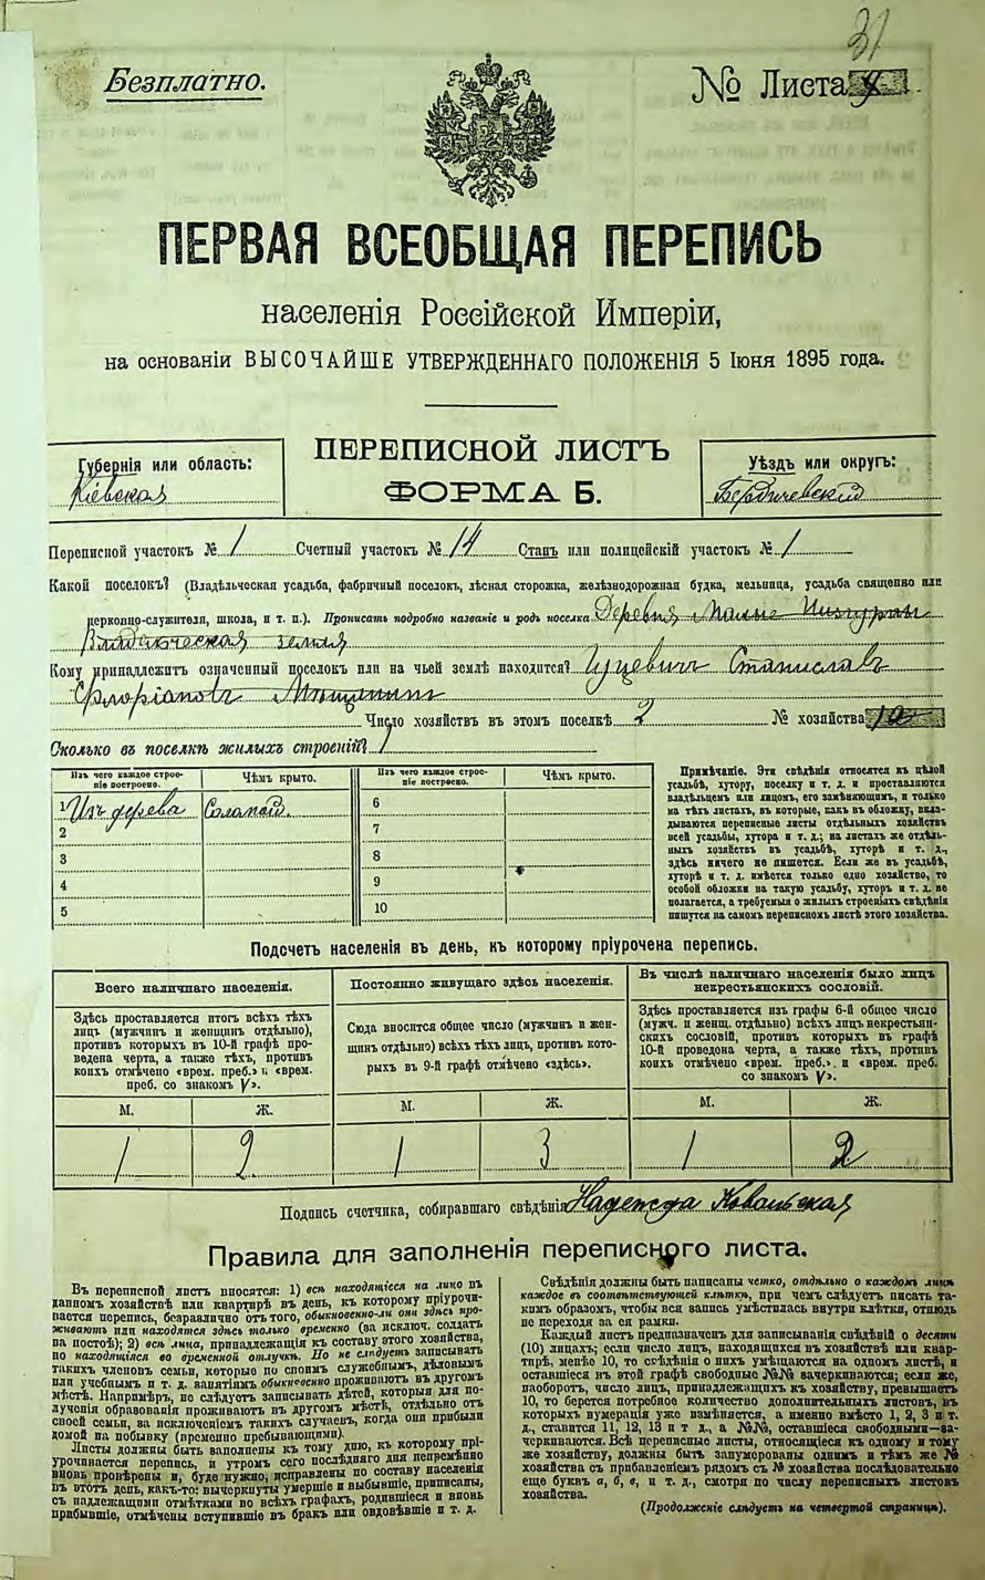 31
Безплатно.
№ Листа
ПЕРВАЯ ВСЕОБЩАЯ ПЕРЕПИСЬ
населенія Россійской Имперіи,
на основаніи ВЫСОЧАЙШЕ УТВЕРЖДЕННАГО ПОЛОЖЕНІЯ 5 Іюня 1895 года.
ПЕРЕПИСНОЙ ЛИСТЪ
ФОРМА Б.
Губернія или область:
Кіевская
Уѣздъ или округъ:
Бердичевскій
Переписной участокъ № 1 Счетный участокъ № 14 Станъ или полицейскій участокъ № 1
Какой поселокъ? (Владѣльческая усадьба, фабричный поселокъ, лѣсная сторожка, желѣзнодорожная будка, мельница, усадьба священно или
церковно-служителя, школа, и т. п.). Прописать подробно названіе и родъ поселка Деревня Малые Низгурцы
Владѣльческая земля
Кому принадлежитъ означенный поселокъ или на чьей землѣ находится? Гуцевичъ Станиславъ
Флоріановъ Мѣщанинъ
Число хозяйствъ въ этомъ поселкѣ 2 № хозяйства 1а
Сколько въ поселкѣ жилыхъ строеній? 1
Изъ чего каждое строеніе построено. Чѣмъ крыто. Изъ чего каждое строеніе построено. Чѣмъ крыто.
1 Изъ дерева Соломой. 6
2 7
3 8
4 9
5 10
Примѣчаніе. Эти свѣдѣнія относятся къ цѣлой
усадьбѣ, хутору, поселку и т. д. и проставляются
владѣльцемъ или лицомъ, его замѣняющимъ, и только
на тѣхъ листахъ, въ которые, какъ въ обложку, вкла-
дываются переписные листы отдѣльныхъ хозяйствъ
всей усадьбы, хутора и т. д.; на листахъ же отдѣль-
ныхъ хозяйствъ въ усадьбѣ, хуторѣ и т. д.,
здѣсь ничего не пишется. Если же въ усадьбѣ,
хуторѣ и т. д. имѣется только одно хозяйство, то
особой обложки на такую усадьбу, хуторъ и т. д. не
полагается, а требуемыя о жилыхъ строеніяхъ свѣдѣнія
пишутся на самомъ переписномъ листѣ этого хозяйства.
Подсчетъ населенія въ день, къ которому пріурочена перепись.
Всего наличнаго населенія.
Здѣсь проставляется итогъ всѣхъ тѣхъ
лицъ (мужчинъ и женщинъ отдѣльно),
противъ которыхъ въ 10-й графѣ про-
ведена черта, а также тѣхъ, противъ
коихъ отмѣчено «врем. преб.» и «врем.
преб. со знакомъ V».
М. Ж.
1 2
Постоянно живущаго здѣсь населенія.
Сюда вносится общее число (мужчинъ и жен-
щинъ отдѣльно) всѣхъ тѣхъ лицъ, противъ кото-
рыхъ въ 9-й графѣ отмѣчено «здѣсь».
М. Ж.
1 3
Въ числѣ наличнаго населенія было лицъ
некрестьянскихъ сословій.
Здѣсь проставляется изъ графы 6-й общее число
(мужч. и женщ. отдѣльно) всѣхъ лицъ некрестьян-
скихъ сословій, противъ которыхъ въ графѣ
10-й проведена черта, а также тѣхъ, противъ
коихъ отмѣчено «врем. преб.» и «врем. преб.
со знакомъ V».
М. Ж.
1 2
Подпись счетчика, собиравшаго свѣдѣнія Надежда Ковальская
Правила для заполненія переписного листа.
Въ переписной листъ вносятся: 1) всѣ находящіеся на лицо въ
данномъ хозяйствѣ или квартирѣ въ день, къ которому пріурочи-
вается перепись, безразлично отъ того, обыкновенно-ли они здѣсь про-
живаютъ или находятся здѣсь только временно (за исключ. солдатъ
на постоѣ); 2) всѣ лица, принадлежащія къ составу этого хозяйства,
но находящіяся во временной отлучкѣ. Но не слѣдуетъ записывать
такихъ членовъ семьи, которые по своимъ служебнымъ, дѣловымъ
или учебнымъ и т. д. занятіямъ обыкновенно проживаютъ въ другомъ
мѣстѣ. Напримѣръ, не слѣдуетъ записывать дѣтей, которыя для по-
лученія образованія проживаютъ въ другомъ мѣстѣ, отдѣльно отъ
своей семьи, за исключеніемъ такихъ случаевъ, когда они прибыли
домой на побывку (временно пребывающими).
Листы должны быть заполнены къ тому дню, къ которому прі-
урочивается перепись, и утромъ сего послѣдняго дня непремѣнно
вновь провѣрены и, буде нужно, исправлены по составу населенія
въ этотъ день, какъ-то: вычеркнуты умершіе и выбывшіе, приписаны,
съ надлежащими отмѣтками во всѣхъ графахъ, родившіеся и вновь
прибывшіе, отмѣчены вступившіе въ бракъ или овдовѣвшіе и т. д.
Свѣдѣнія должны быть написаны четко, отдѣльно о каждомъ лицѣ
каждое въ соотвѣтствующей клѣткѣ, при чемъ слѣдуетъ писать та-
кимъ образомъ, чтобы вся запись умѣстилась внутри клѣтки, отнюдь
не переходя за ея рамки.
Каждый листъ предназначенъ для записыванія свѣдѣній о десяти
(10) лицахъ; если число лицъ, находящихся въ хозяйствѣ или квар-
тирѣ, менѣе 10, то свѣдѣнія о нихъ умѣщаются на одномъ листѣ, и
оставшіеся въ этой графѣ свободные №№ вачеркиваются; если же,
наоборотъ, число лицъ, принадлежащихъ къ хозяйству, превышаетъ
10, то берется потребное количество дополнительныхъ листовъ, въ
которыхъ нумерація уже измѣняется, а именно вмѣсто 1, 2, 3 и т.
д., ставится 11, 12, 13 и т д., а №№, оставшіеся свободными—за-
черкиваются. Всѣ переписные листы, относящіеся къ одному и тому
же хозяйству, должны быть занумерованы однимъ и тѣмъ же №
хозяйства съ прибавленіемъ рядомъ съ № хозяйства послѣдовательно
еще буквъ а, б, в, и т. д., смотря по числу переписныхъ листовъ
хозяйства.
(Продолженіе слѣдуетъ на четвертой страницѣ).